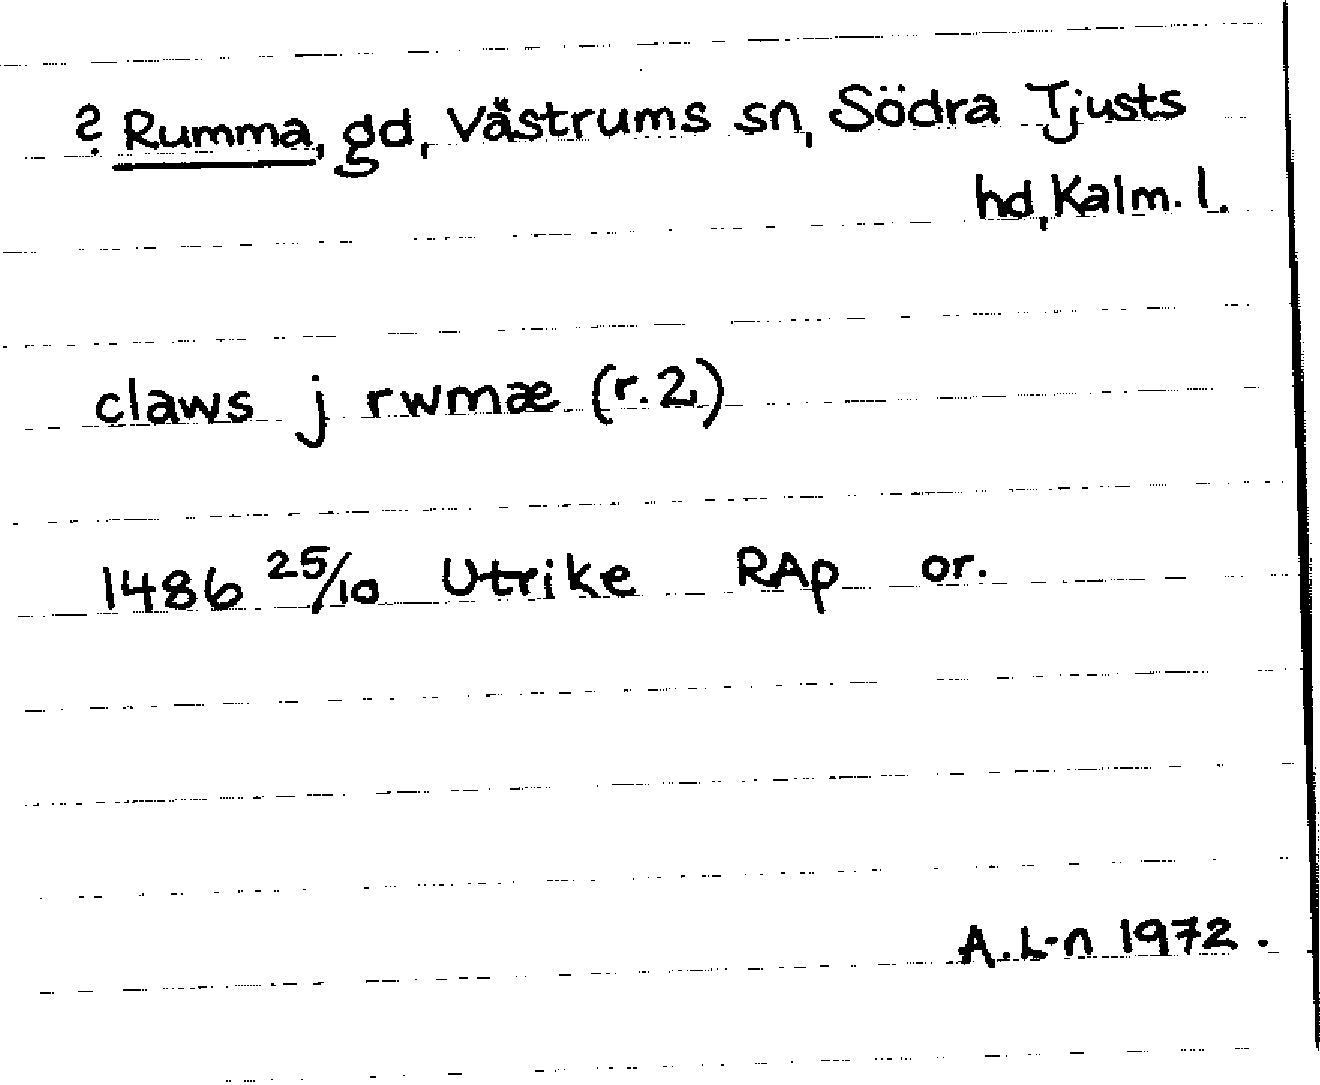 ? Rumma, gd, Västrums sn, Södra Tjusts
hd, Kalm. l.
claws j rwmæ (r.2)
1486 25/10 Utrike RAp or.
A.L-n 1972.